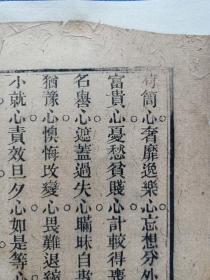 苟簡心奢靡逸樂心忘想分外
富貴心憂愁貧賤心計較得喪
名譽心遮蓋過失心瞞昧自
猶豫心懊悔改變心畏難退
小就心責效旦夕心如是等心